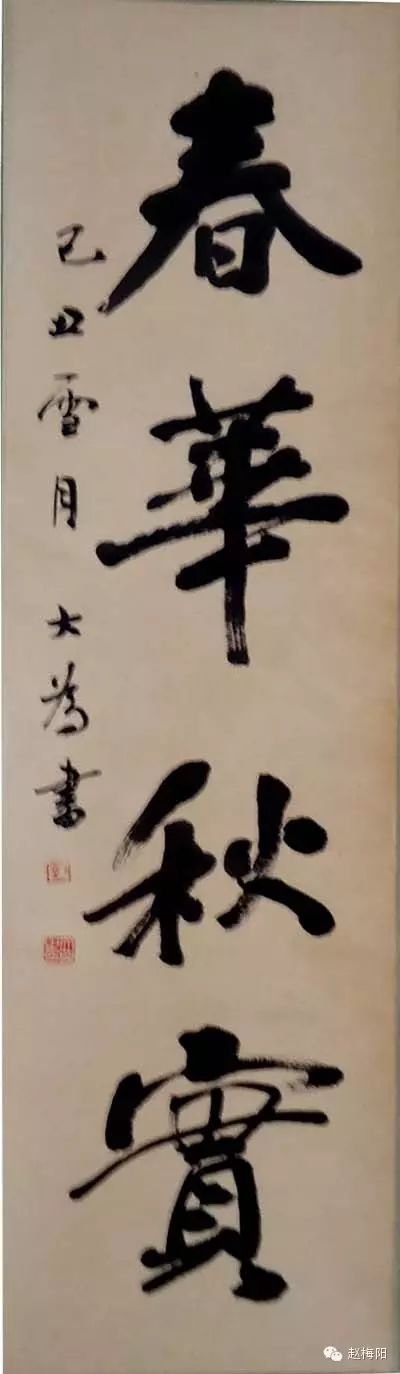 春華秋實
己丑雪月 大為書
赵梅阳